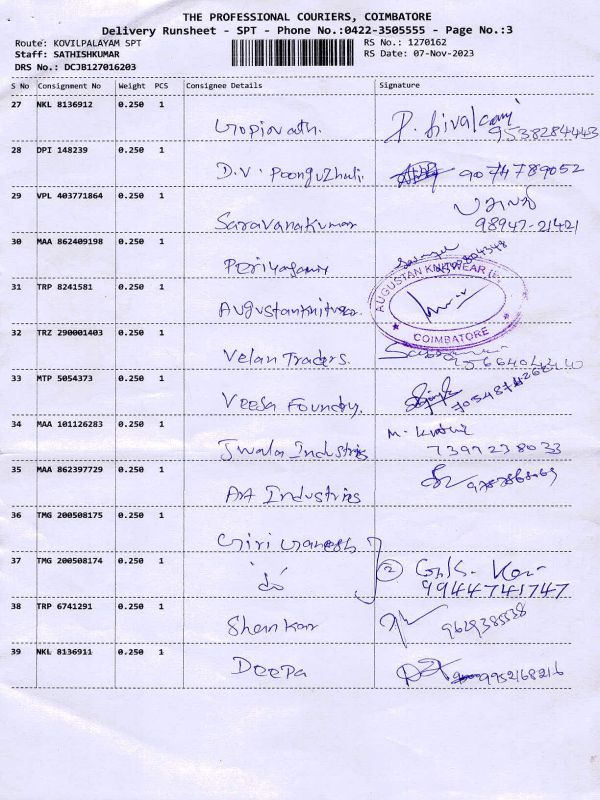 THE PROFESSIONAL COURIERS, COIMBATORE
Delivery Runsheet - SPT - Phone No.:0422-3505555 - Page No.:3
Route: KOVILPALAYAM SPT
RS No.: 1270162
Staff: SATHISHKUMAR
RS Date: 07-Nov-2023
DRS No.: DCJB127016203
S No Consignment No Weight PCS Consignee Details Signature
27 NKL 8136912 0.250 1
Gopinath. P. Sivalcami
9538284443
28 DPI 148239 0.250 1
D.V. Poonguzhali. 9074789052
29 VPL 403771864 0.250 1
Saravanakumar
98947-21421
30 MAA 862409198 0.250 1
Periyasamy
31 TRP 8241581 0.250 1
AUGUSTAN KNITWEAR
Augustanknitwear.
COIMBATORE
32 TRZ 290001403 0.250 1
Velan Traders.
33 MTP 5054373 0.250 1
Veesa Foundry.
34 MAA 101126283 0.250 1
Jwala Industries M.
7397238033
35 MAA 862397729 0.250 1
Art Industries
36 TMG 200508175 0.250 1
Giri Ganesh
37 TMG 200508174 0.250 1
2
9944741747
38 TRP 6741291 0.250 1
Shankar 9629385538
39 NKL 8136911 0.250 1
Deepa 9952168216